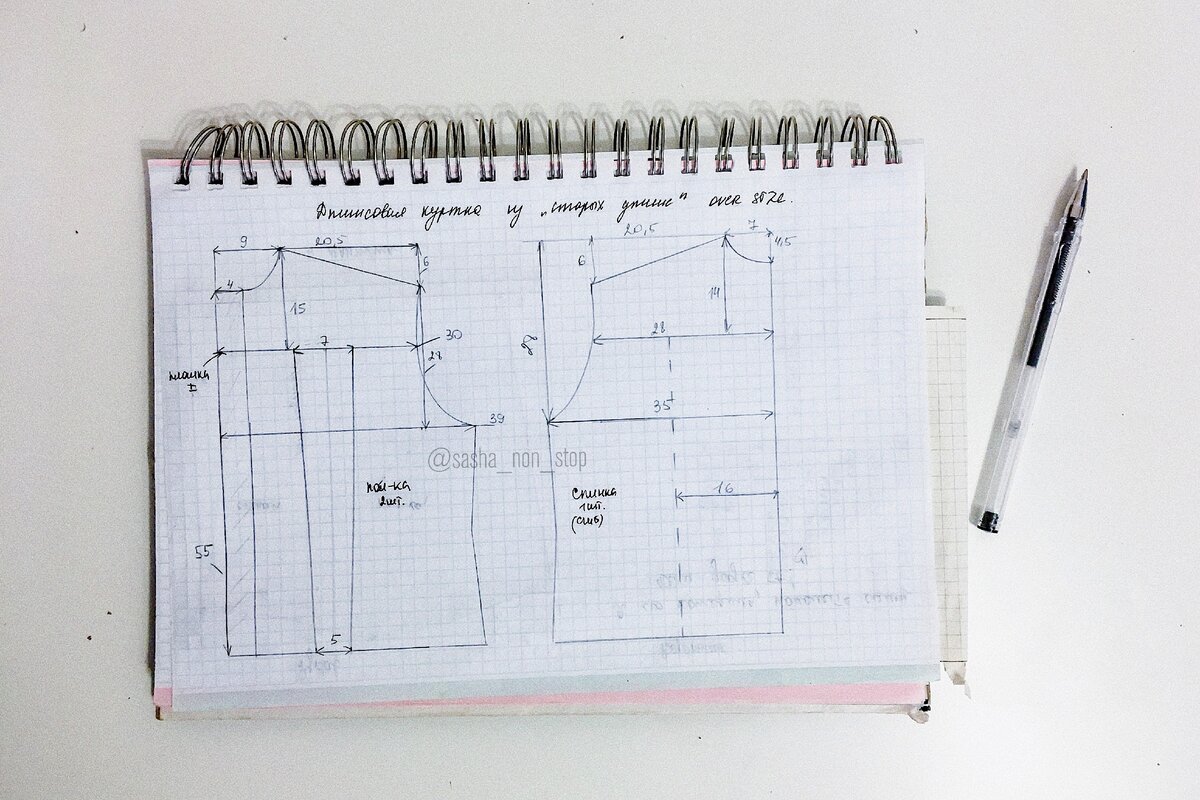 Джинсовая куртка из „старых джинс" over size.
9
20,5
6
4
15
7
30
28
планка
39
@sasha_non_stop
пол-ка
2шт.
55
5
20,5
7
4,5
6
14
28
35
Спинка
1шт.
(сгиб)
16